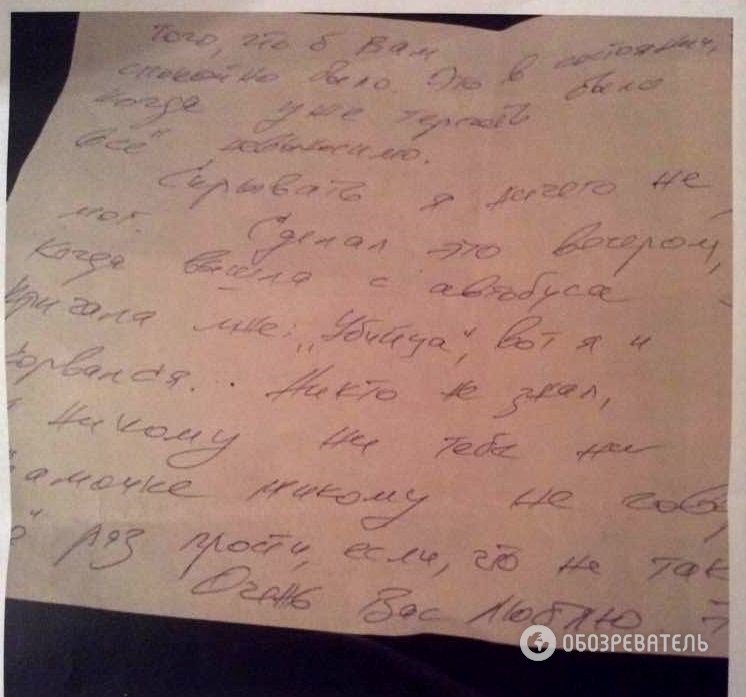 того, что б Вам
спокойно было. Это в состоянии,
когда уже терпеть было
"всё" невыносимо.
Скрывать я ничего не
мог. Сделал это вечером,
когда вышла с автобуса
кричала мне: "Убийца", вот я и
сорвался... Никто не знал,
никому ни тебе ни
мамочке никому не гов
раз прости, если, что не так
Очень Вас люблю
ОБОЗРЕВАТЕЛЬ